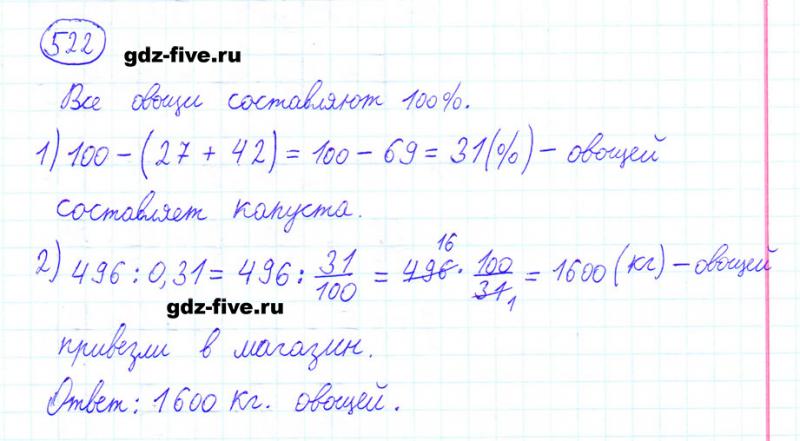 522
gdz-five.ru
Все овощи составляют 100%.
1) 100 - (27 + 42) = 100 - 69 = 31(%) - овощей
составляет капуста.
2) 496 : 0,31 = 496 : 31/100 = 496 16 · 100/31 1 = 1600 (кг) - овощей
gdz-five.ru
привезли в магазин.
Ответ: 1600 кг. овощей.